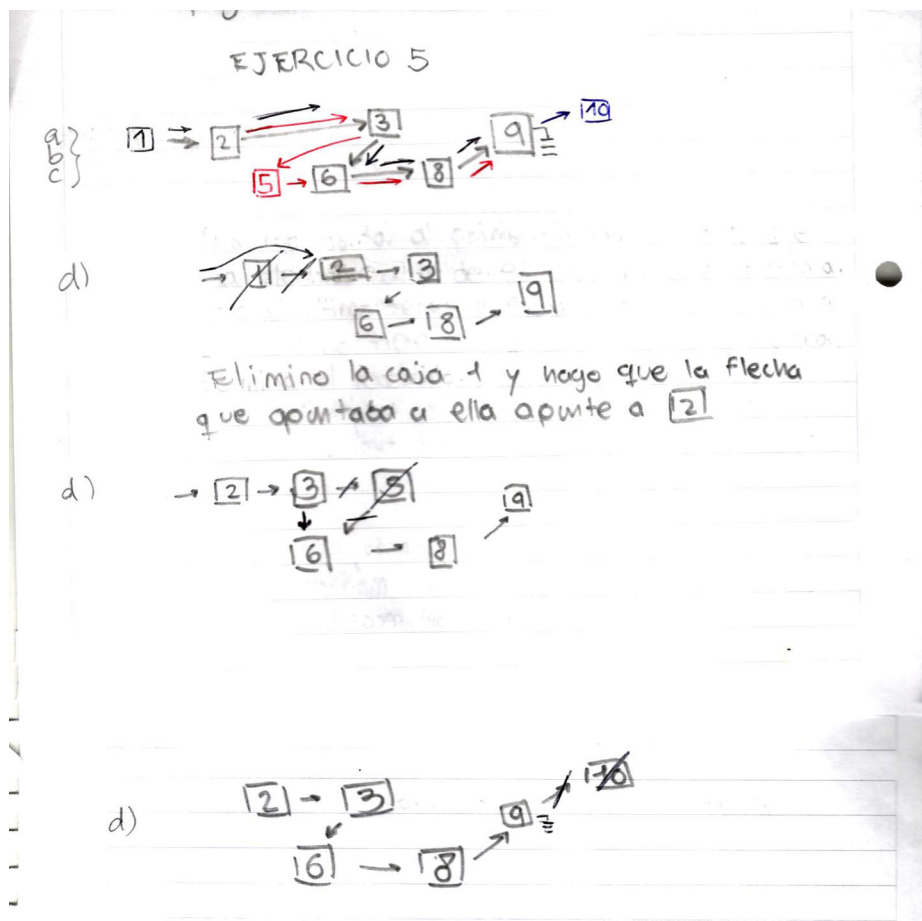 EJERCICIO 5
a}
b}
c}
1 2 3 9 10
5 6 8
d) 1 2 3
6 8 9
Elimino la caja 1 y hago que la flecha
que apuntaba a ella apunte a 2
d) 2 3 5 9
6 8
d) 2 3 9 10
6 8